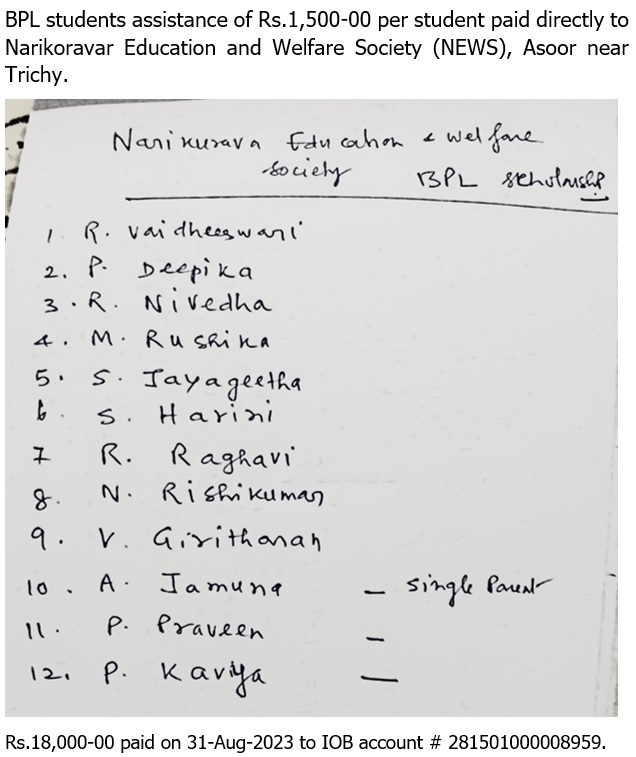 BPL students assistance of Rs.1,500-00 per student paid directly to
Narikoravar Education and Welfare Society (NEWS), Asoor near
Trichy.
Narikurava Education & welfare
society BPL scholarship
1. R. Vaidheeswari
2. P. Deepika
3. R. Nivedha
4. M. Rushika
5. S. Jayageetha
6. S. Harini
7 R. Raghavi
8. N. Rishikumar
9. V. Giritharan
10. A. Jamuna – Single Parent
11. P. Praveen –
12. P. Kaviya –
Rs.18,000-00 paid on 31-Aug-2023 to IOB account # 281501000008959.